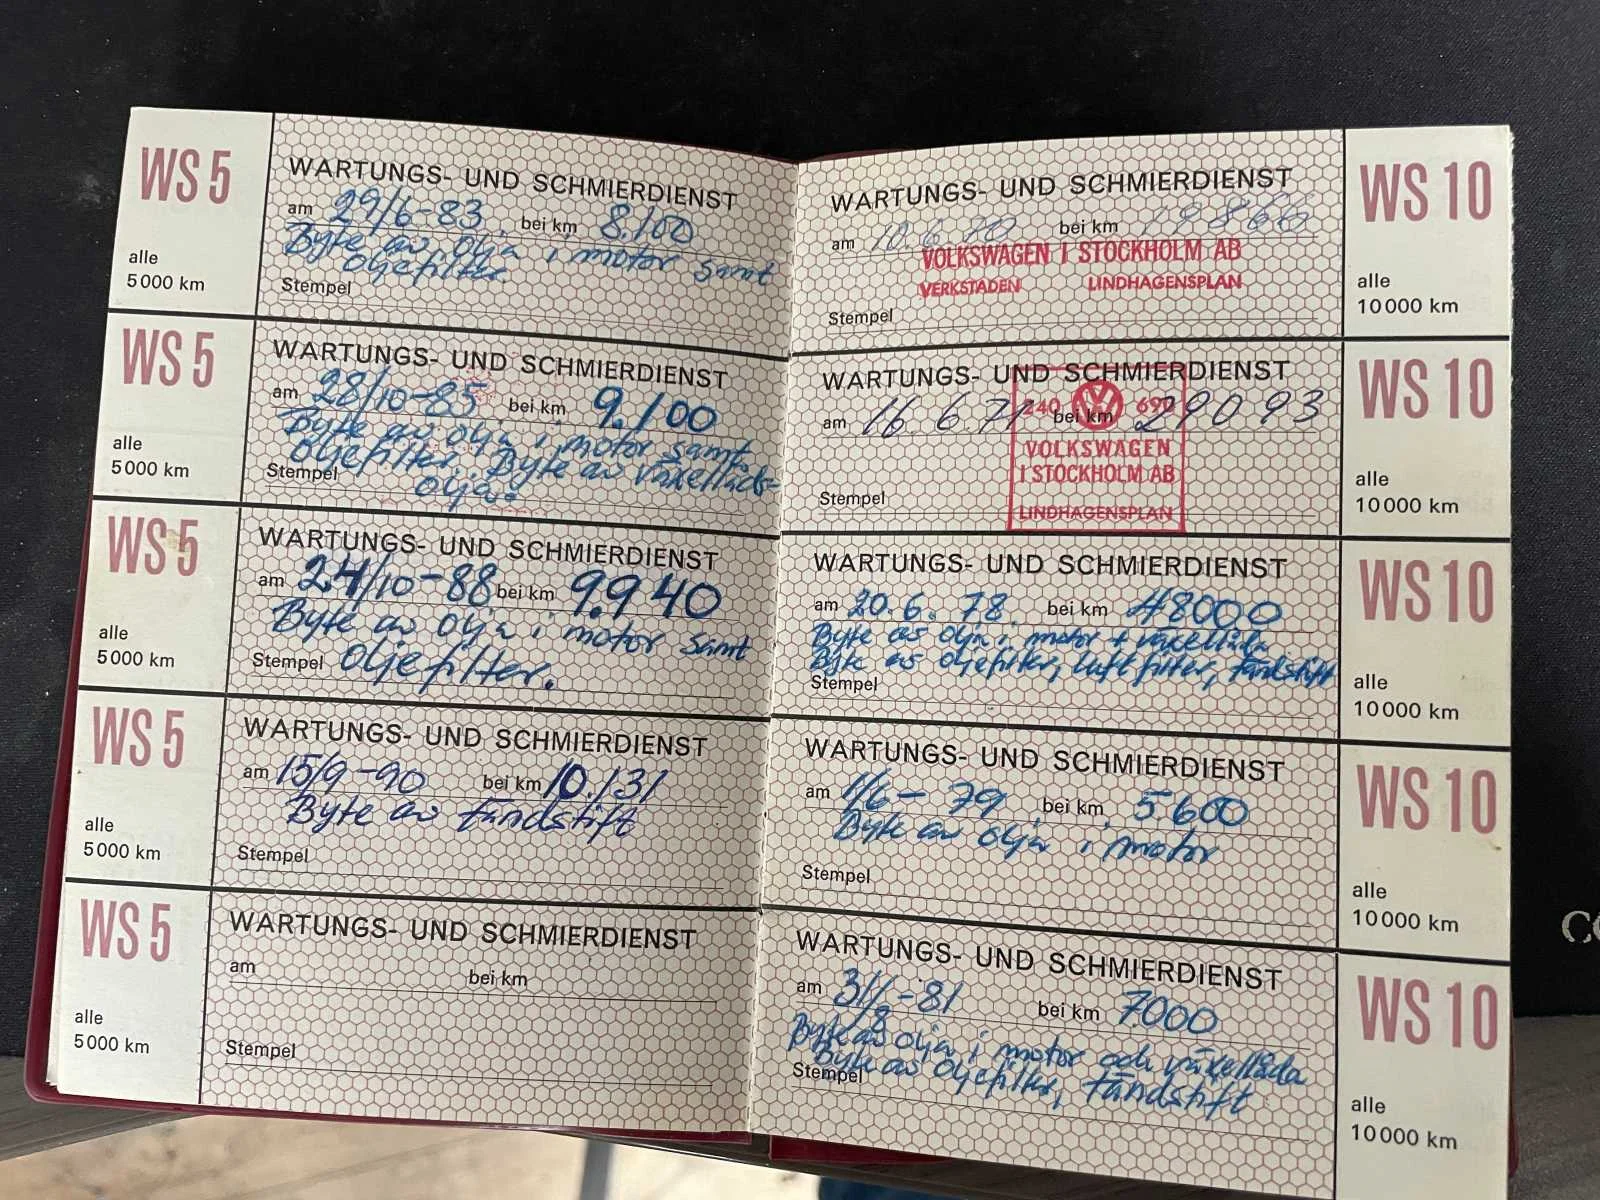 WS 5
alle
5000 km
WARTUNGS- UND SCHMIERDIENST
am 29/6-83 bei km 8.100
Byte av olja i motor samt
oljefilter.
Stempel
WS 5
alle
5000 km
WARTUNGS- UND SCHMIERDIENST
am 28/10-85 bei km 9.100
Byte av olja i motor samt
oljefilter. Byte av växellåds-
olja.
Stempel
WS 5
alle
5000 km
WARTUNGS- UND SCHMIERDIENST
am 24/10-88 bei km 9.940
Byte av olja i motor samt
Stempel oljefilter.
WS 5
alle
5000 km
WARTUNGS- UND SCHMIERDIENST
am 15/9-90 bei km 10.131
Byte av tändstift
Stempel
WS 5
alle
5000 km
WARTUNGS- UND SCHMIERDIENST
am bei km
Stempel
WARTUNGS- UND SCHMIERDIENST
am 10.6.70 bei km
VOLKSWAGEN I STOCKHOLM AB
VERKSTADEN LINDHAGENSPLAN
Stempel
WS 10
alle
10 000 km
WARTUNGS- UND SCHMIERDIENST
am 16.6.71 bei km 29093
240 690
VOLKSWAGEN
I STOCKHOLM AB
LINDHAGENSPLAN
Stempel
WS 10
alle
10 000 km
WARTUNGS- UND SCHMIERDIENST
am 20.6.78. bei km 48000
Byte av olja i motor + växellåda
Byte av oljefilter, luftfilter, tändstift
Stempel
WS 10
alle
10 000 km
WARTUNGS- UND SCHMIERDIENST
am 1/6-79 bei km 5600
Byte av olja i motor
Stempel
WS 10
alle
10 000 km
WARTUNGS- UND SCHMIERDIENST
am 31/8-81 bei km 7000
Byte av olja i motor och växellåda
Byte av oljefilter, tändstift
Stempel
WS 10
alle
10 000 km